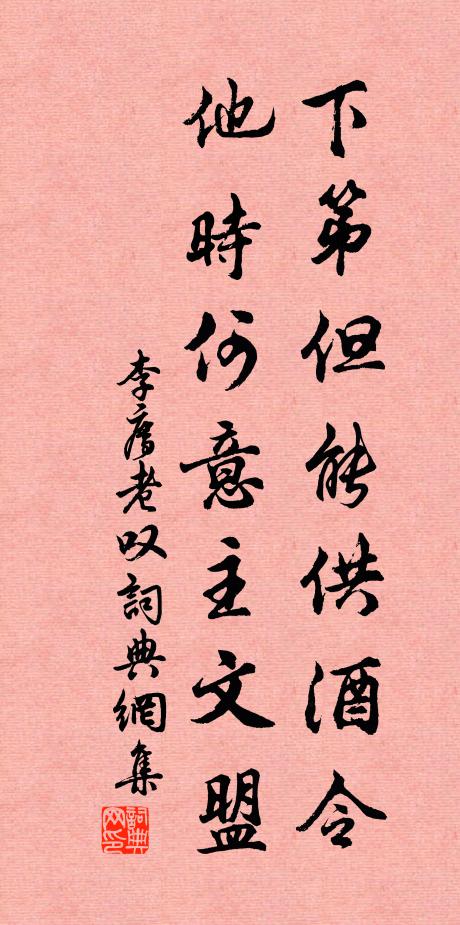 下第但能供酒令
他時何意主文盟
李廌老叹詞典網集
詞典网印